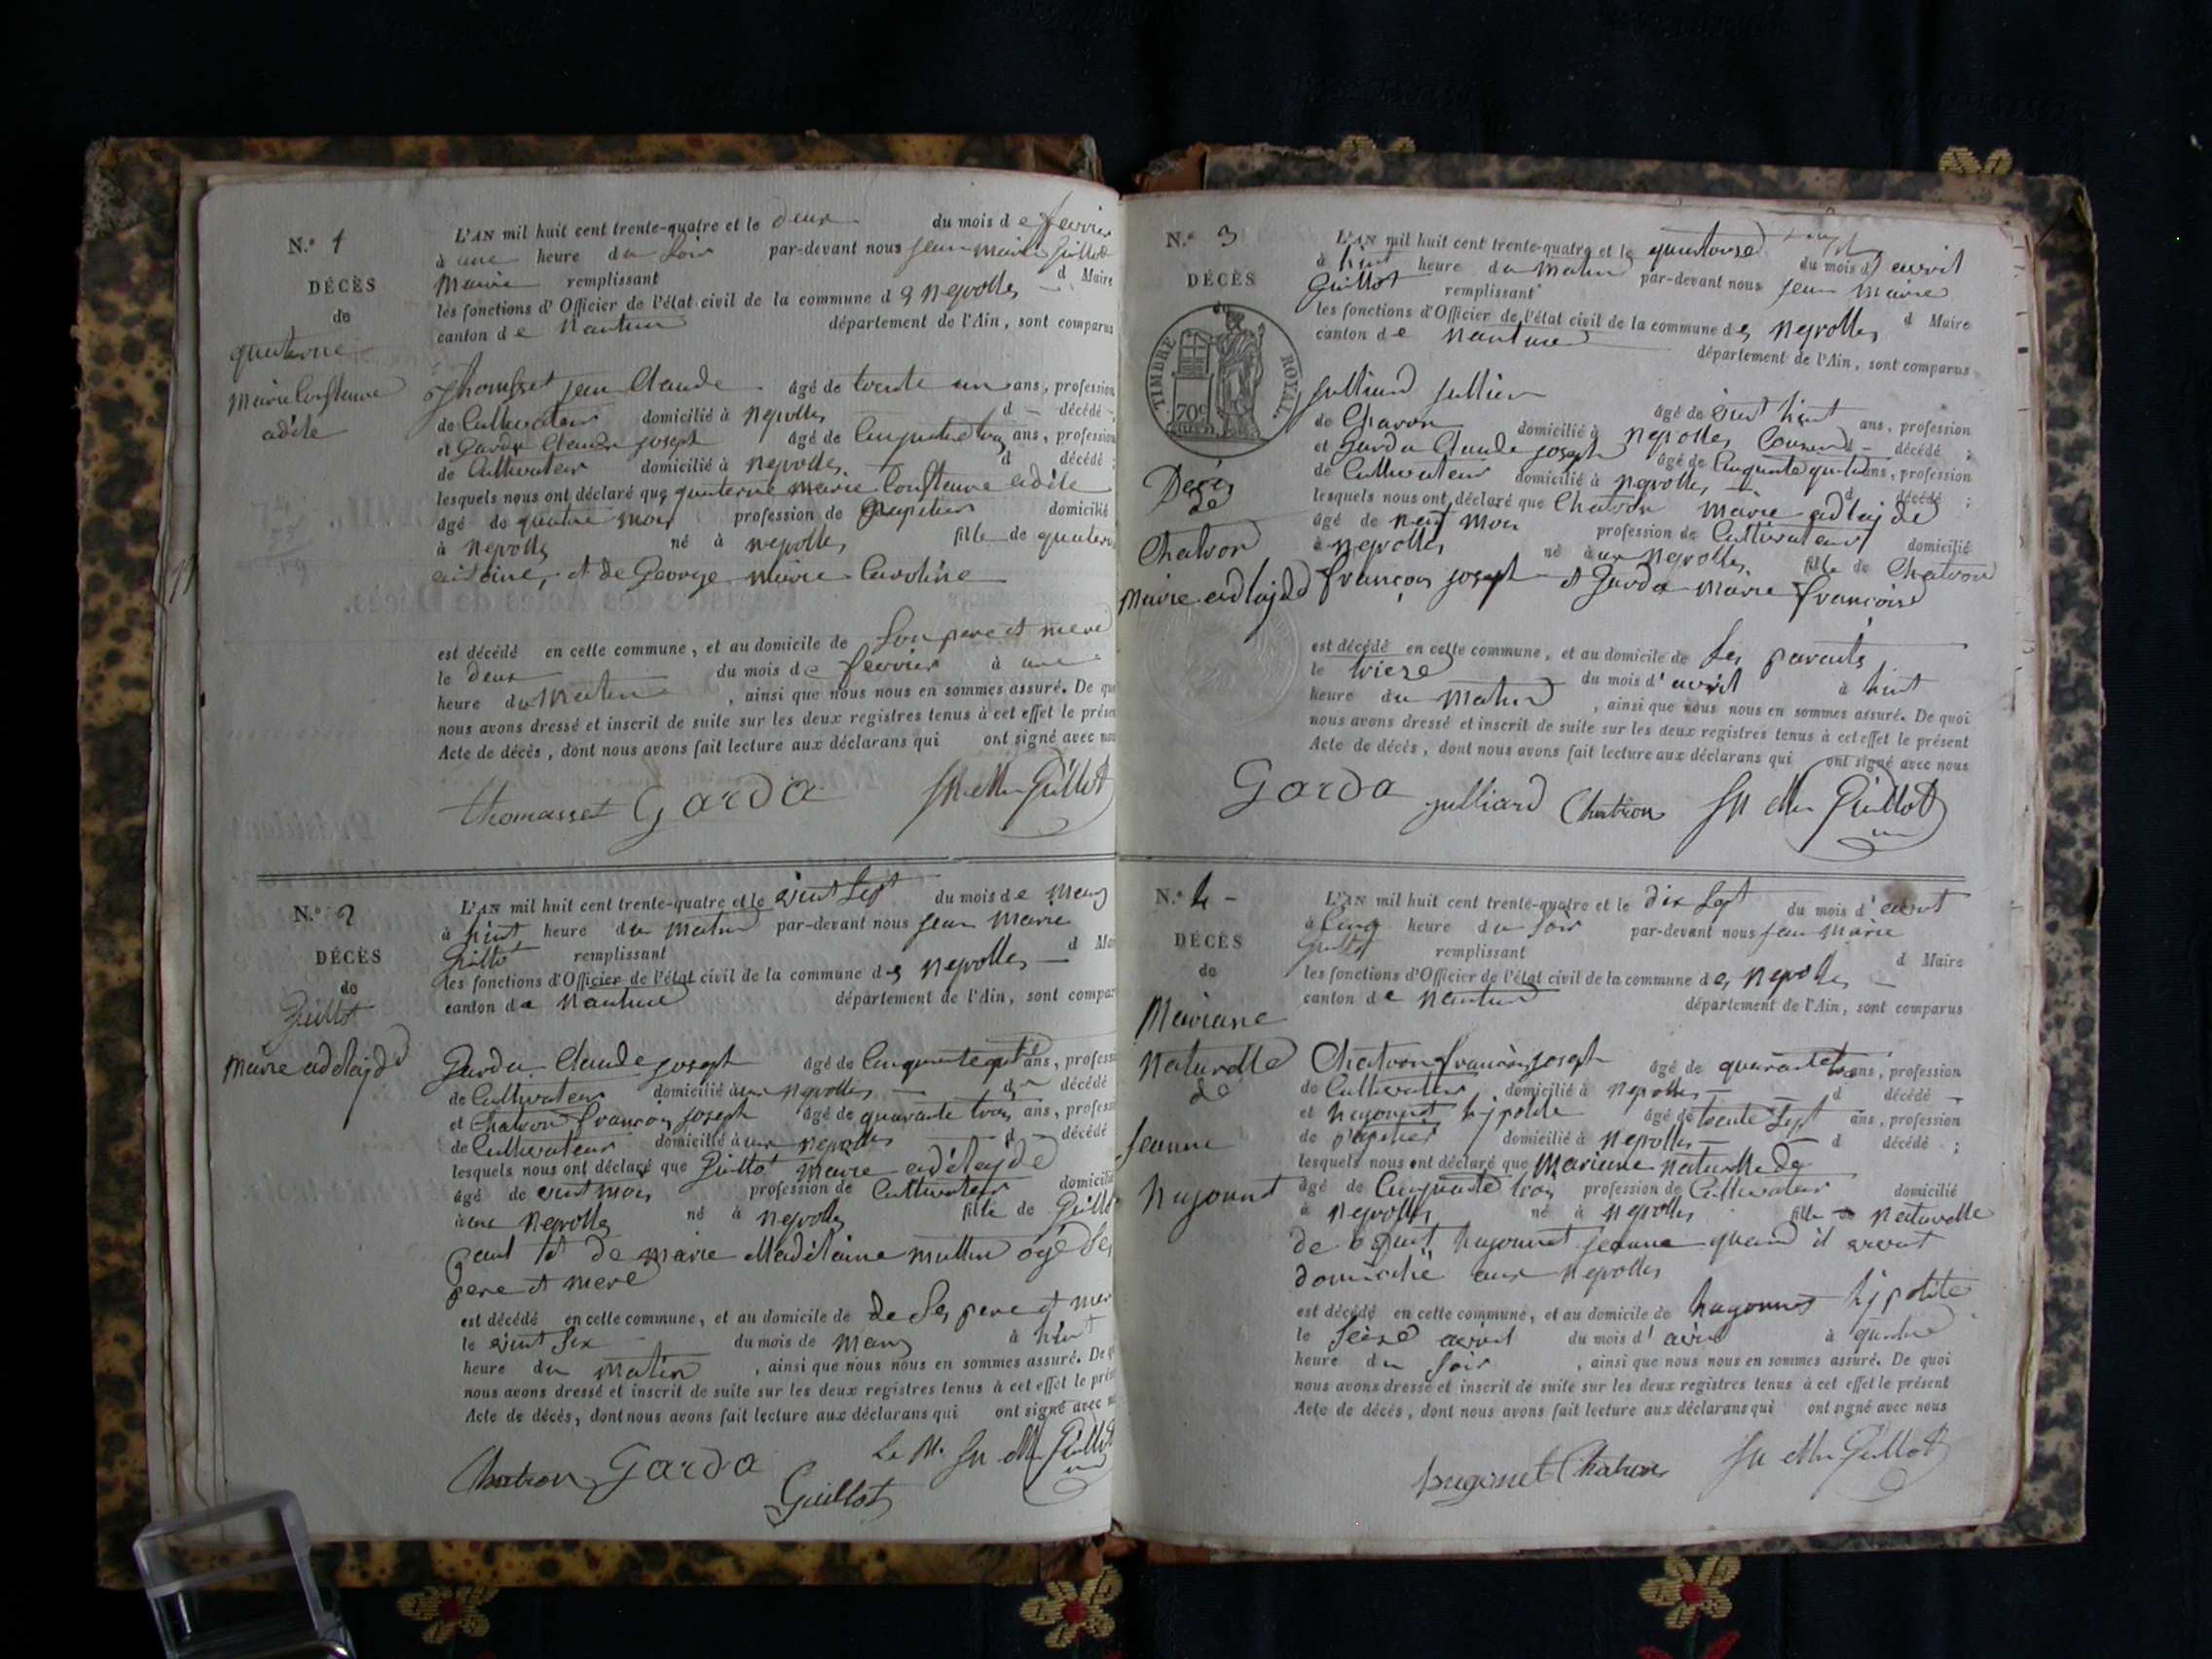 N.º 1
DÉCÈS
de
quaterne
marie Constance
adèle
L'AN mil huit cent trente-quatre et le deux du mois de fevrier
à une heure du soir par-devant nous jean marie Guillot
Maire remplissant d Maire
les fonctions d'Officier de l'état civil de la commune d es neyrolles
canton de Nantua département de l'Ain, sont comparus
Thomasset jean Claude âgé de trente un ans, profession
de Cultivateur domicilié à neyrolles d décédé
et Garda Claude joseph âgé de Cinquante ans, profession
de Cultivateur domicilié à neyrolles d décédé ;
lesquels nous ont déclaré que quaterne marie Constance adèle
âgé de quatre mois profession de domicilié
à neyrolles né à neyrolles fille de
antoine, et de George marie Caroline
est décédé en cette commune, et au domicile de Son pere et mere
le deux du mois de fevrier à une
heure du Matin , ainsi que nous nous en sommes assuré. De
nous avons dressé et inscrit de suite sur les deux registres tenus à cet effet le
Acte de décès, dont nous avons fait lecture aux déclarans qui ont signé avec
thomasset Garda Jn Mie Guillot
N.º 2
DÉCÈS
de
Guillot
marie adelayde
L'AN mil huit cent trente-quatre et le vint Sept du mois de mars
à huit heure du matin par-devant nous jean marie
Guillot remplissant d
les fonctions d'Officier de l'état civil de la commune d es neyrolles
canton de Nantua département de l'Ain, sont
Garda Claude joseph âgé de ans,
de Cultivateur domicilié aux neyrolles d décédé
et Chatron françois joseph âgé de quarante trois ans,
de Cultivateur domicilié aux neyrolles d décédé
lesquels nous ont déclaré que Guillot marie adélayde
âgé de vint mois profession de Cultivateur domicilié
aux neyrolles né à neyrolles fille de
paul et de marie Madélaine
pere et mere
est décédé en cette commune, et au domicile de de Ses pere et
le vint Six du mois de mars à huit
heure du matin , ainsi que nous nous en sommes assuré. De
nous avons dressé et inscrit de suite sur les deux registres tenus à cet effet le
Acte de décès, dont nous avons fait lecture aux déclarans qui ont signé avec
Chatron Garda Le M. Jn Mie Guillot
Guillot
N.º 3
DÉCÈS
de
TIMBRE ROYAL
70c
Décès
de
Chatron
Marie adlayde
L'AN mil huit cent trente-quatre et le quatorze du mois d'avril
à huit heure du matin par-devant nous jean marie
Guillot remplissant d Maire
les fonctions d'Officier de l'état civil de la commune d es neyrolles
canton de Nantua département de l'Ain, sont comparus
julliard jullien âgé de vint huit ans, profession
de Charon domicilié à neyrolles Cousin d décédé ;
et Garda Claude joseph âgé de ans, profession
de Cultivateur domicilié à neyrolles d décédé ;
lesquels nous ont déclaré que Chatron marie adlayde
âgé de neuf mois profession de Cultivateur domicilié
à neyrolles né aux neyrolles fille de Chatron
françois joseph et Garda marie françoise
est décédé en cette commune, et au domicile de Ses parents
le trieze du mois d'avril à huit
heure du matin , ainsi que nous nous en sommes assuré. De quoi
nous avons dressé et inscrit de suite sur les deux registres tenus à cet effet le présent
Acte de décès, dont nous avons fait lecture aux déclarans qui ont signé avec nous
Garda julliard Chatron Jn Mie Guillot
N.º 4
DÉCÈS
de
Mariane
naturelle
de
jeanne
hugonnet
L'AN mil huit cent trente-quatre et le dix Sept du mois d'avril
à Cinq heure du Soir par-devant nous jean marie
Guillot remplissant d Maire
les fonctions d'Officier de l'état civil de la commune d es neyrolles
canton de Nantua département de l'Ain, sont comparus
Chatron françois joseph âgé de quarante trois ans, profession
de Cultivateur domicilié à neyrolles d décédé
et hugonnet hypolite âgé de trente Sept ans, profession
de papetier domicilié à neyrolles d décédé ;
lesquels nous ont déclaré que Mariane naturelle de
âgé de Cinquante trois profession de Cultivateur domicilié
à neyrolles né à neyrolles fille naturelle
de hugonnet jeanne quand il
domicilié aux neyrolles
est décédé en cette commune, et au domicile de hugonnet hypolite
le Seize avril du mois d'avril à quatre
heure du Soir , ainsi que nous nous en sommes assuré. De quoi
nous avons dressé et inscrit de suite sur les deux registres tenus à cet effet le présent
Acte de décès, dont nous avons fait lecture aux déclarans qui ont signé avec nous
hugonnet Chatron Jn Mie Guillot